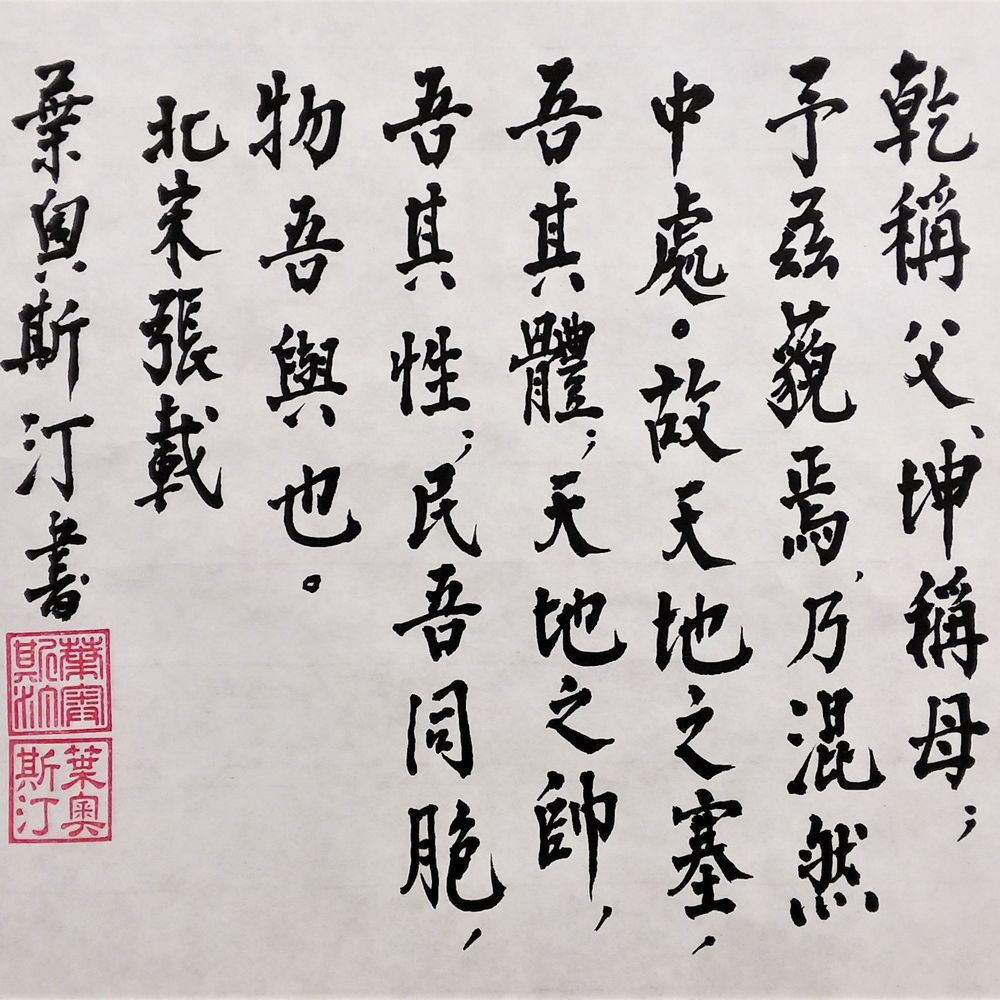 乾稱父、坤稱母；
予茲藐焉，乃混然
中處。故天地之塞，
吾其體；天地之帥，
吾其性；民吾同胞，
物吾與也。
北宋張載
葉奧斯汀書
葉奧斯汀
葉奧斯汀